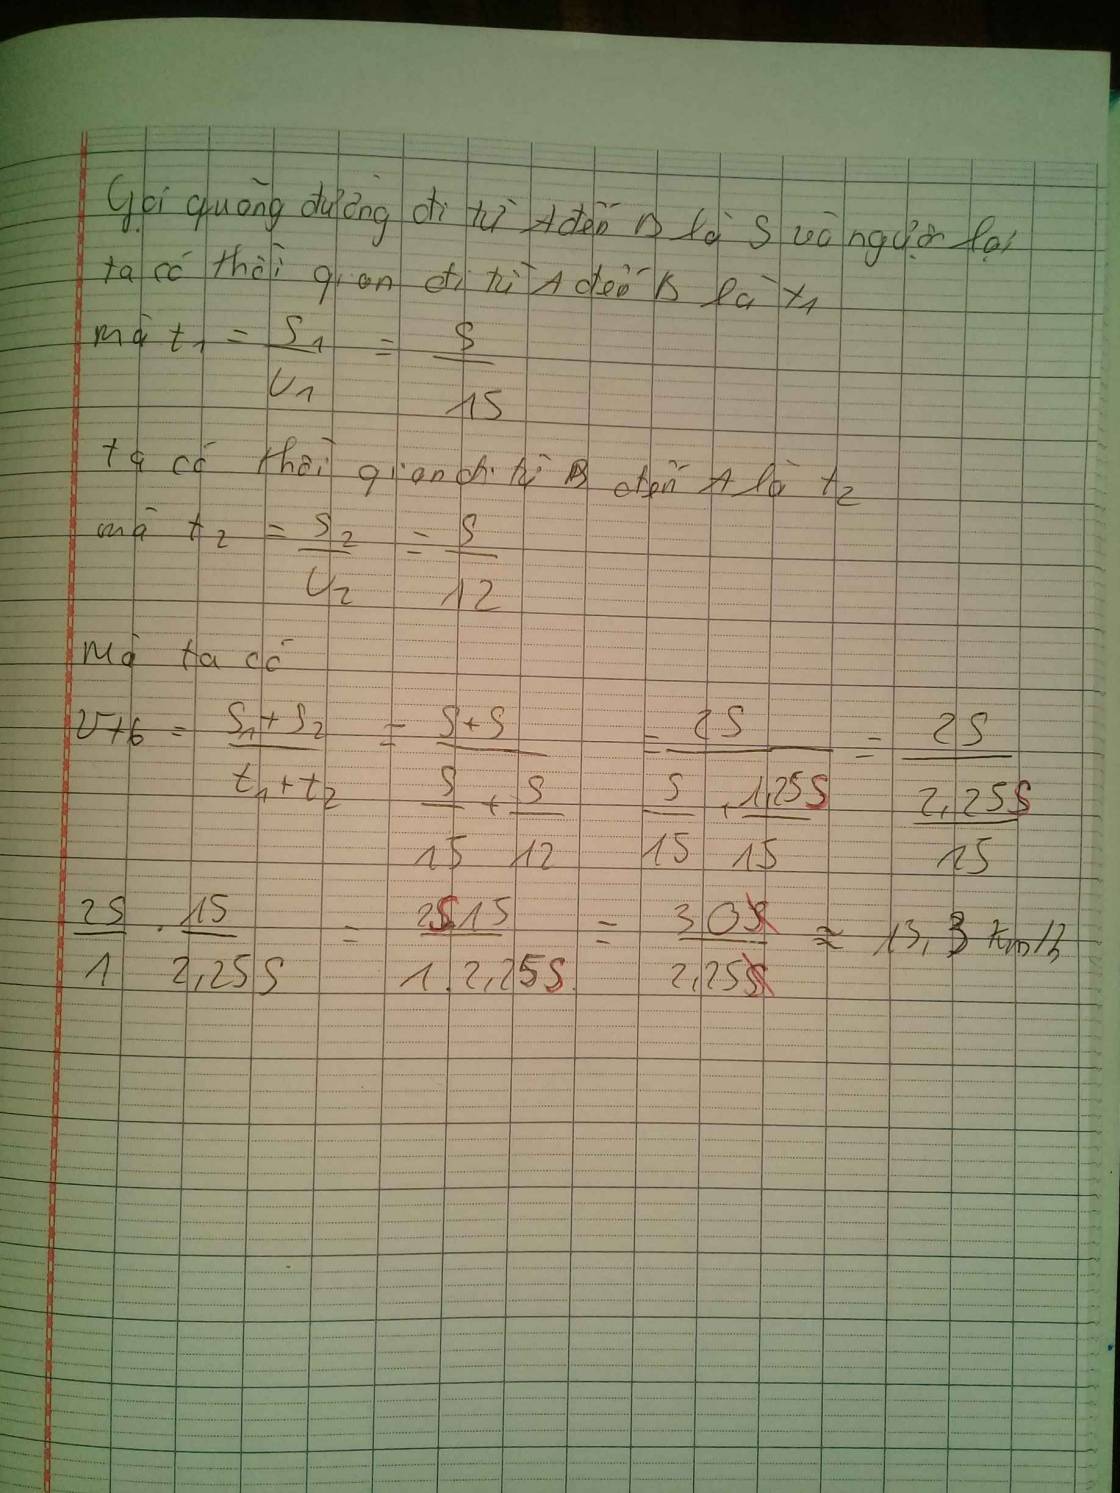 Gọi quãng đường đi từ A đến B là S và ngược lại
ta có thời gian đi từ A đến B là t₁
mà t₁ = S₁/V₁ = S/15
ta có thời gian đi từ B đến A là t₂
mà t₂ = S₂/V₂ = S/12
Mà ta có
Vtb = (S₁+S₂)/(t₁+t₂) = (S+S)/(S/15 + S/12) = 2S/(S/15 + 1,25S/15) = 2S/(2,25S/15)
2S/1 . 15/2,25S = 2S15/1.2,25S = 30S/2,25S ≈ 13,3 km/h